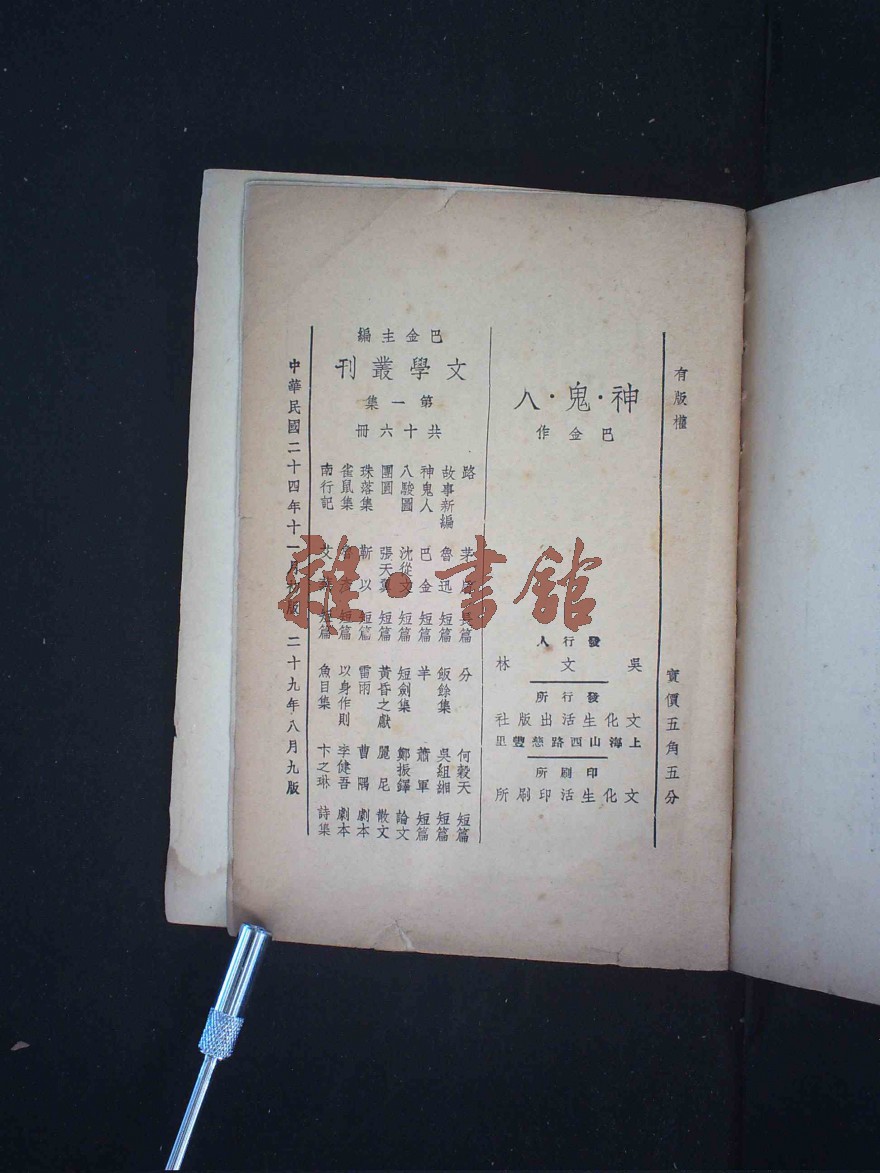 有版權
實價五角五分
神·鬼·人
巴金作
發行人
吳文林
發行所
文化生活出版社
上海山西路慈豐里
印刷所
文化生活印刷所
巴金主編
文學叢刊
第一集
共十六冊
路 茅盾 長篇
故事新編 魯迅 短篇
神鬼人 巴金 短篇
八駿圖 沈從文 短篇
團圓 張天翼 短篇
珠落集 靳以 短篇
雀鼠集 魯彥 短篇
南行記 艾蕪 短篇
分 何穀天 短篇
飯餘集 吳組緗 短篇
羊 蕭軍 短篇
短劍集 鄭振鐸 論文
黃昏之獻 麗尼 散文
雷雨 曹禺 劇本
以身作則 李健吾 劇本
魚目集 卞之琳 詩集
中華民國二十四年十一月初版 二十九年八月九版
雜·書館